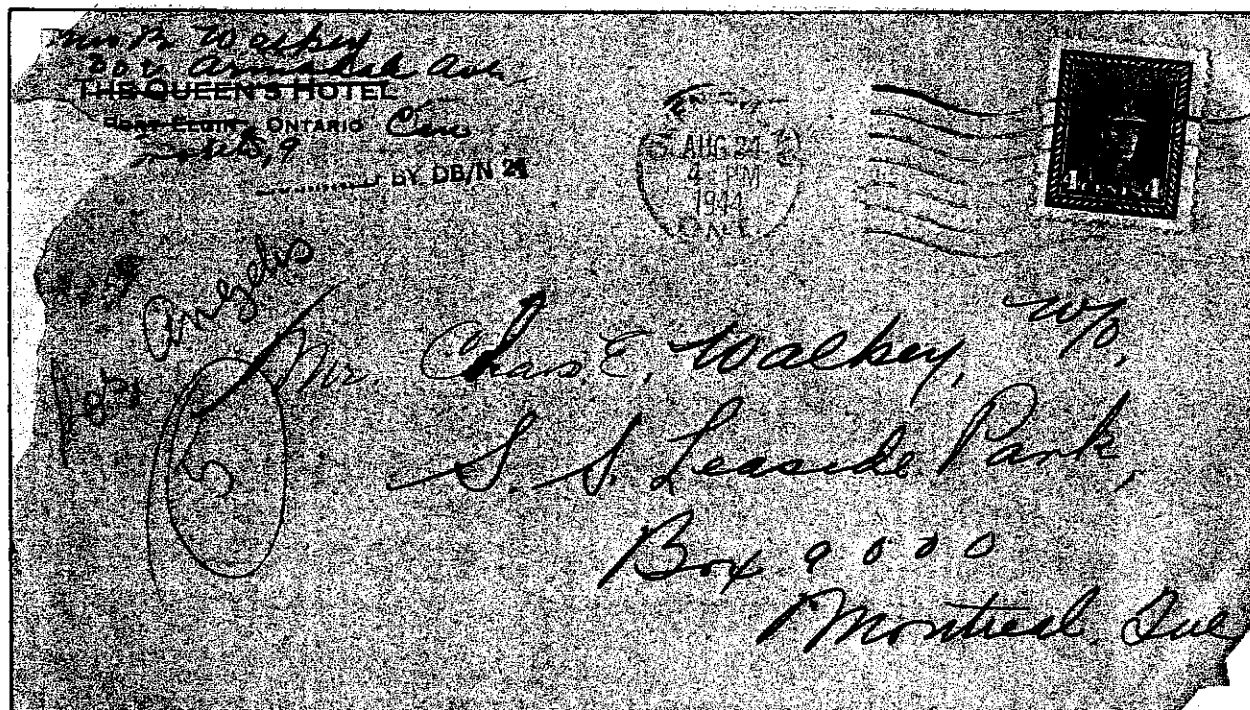 Mrs B. Walkey
Ave
THE QUEEN'S HOTEL
PORT ELGIN ONTARIO
BY DB/N 21
AUG 24
4 PM
1944
Los Angeles
5
Mr. Chas. E. Walkey, W/O,
S. S. Leaside Park,
Box 9000
Montreal, Que